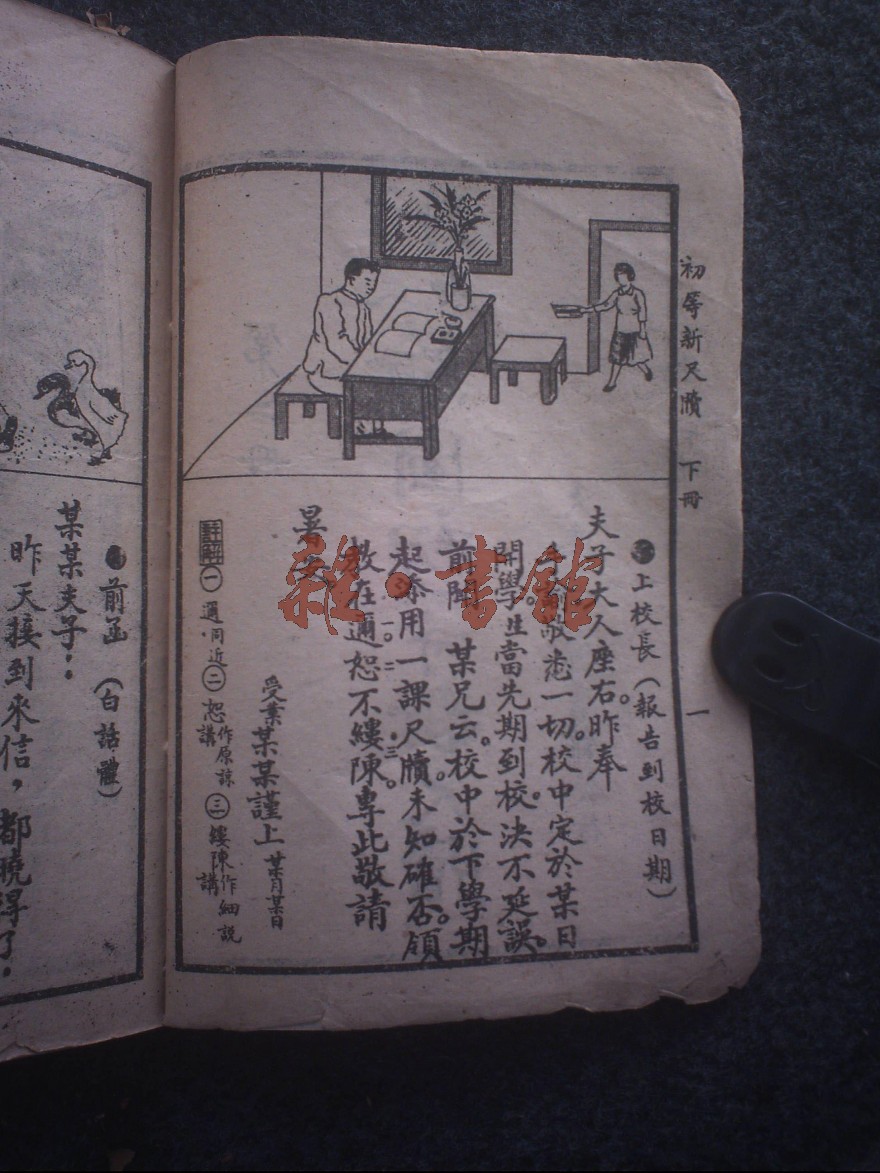 初等新尺牘 下冊
一
上校長(報告到校日期)
夫子大人座右。昨奉
敬悉一切。校中定於某日
開學。生當先期到校。決不延誤。
前聞 某兄云。校中於下學期
起添用一課尺牘。未知確否。領
教在邇。恕不縷陳。專此敬請
暑安
受業某某謹上 某月某日
註解 ㊀邇.同近 ㊁恕作原諒講 ㊂縷陳作細說講
前函(白話體)
某某夫子:
昨天接到來信,都曉得了.
雜·書館